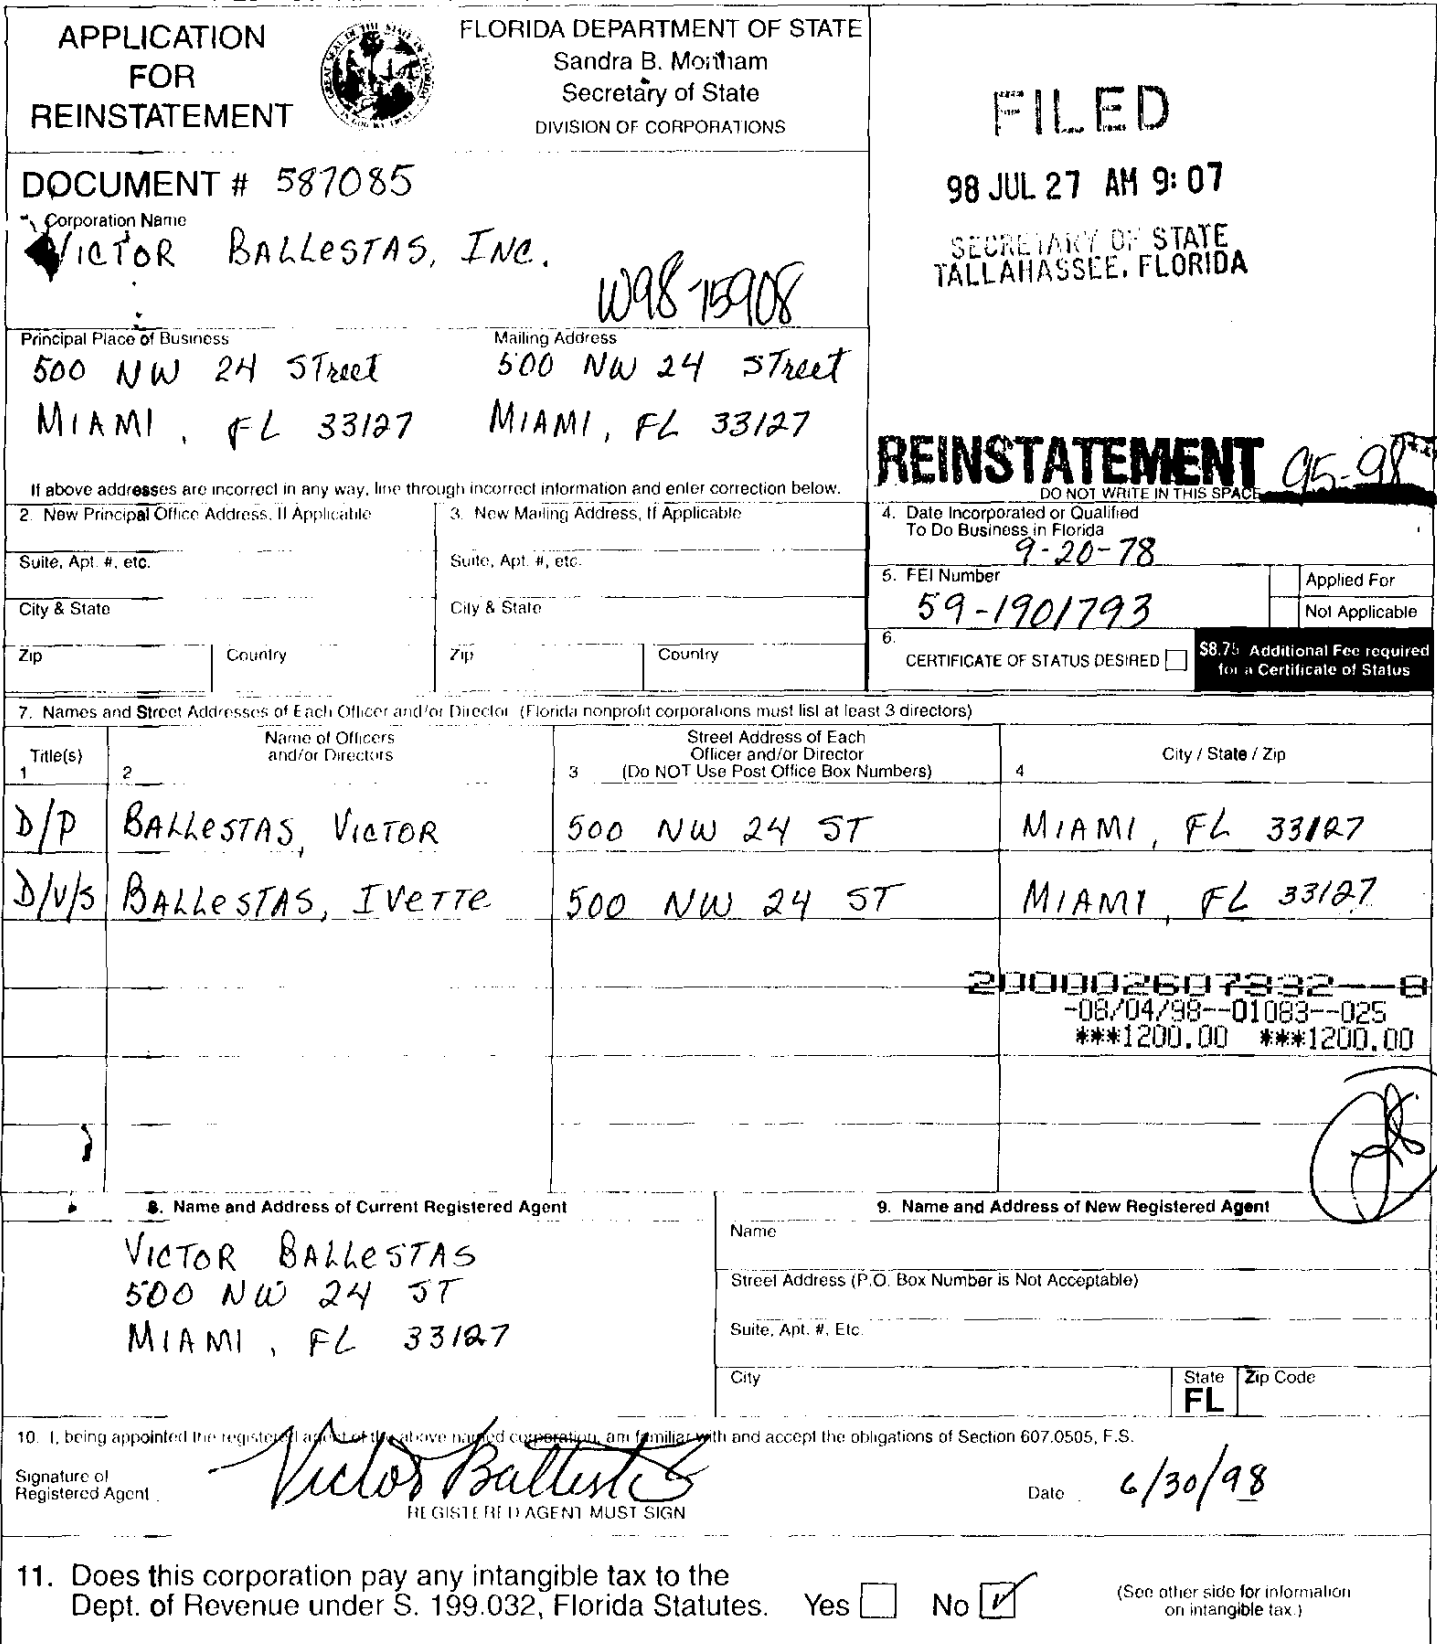 APPLICATION
FOR
REINSTATEMENT
FLORIDA DEPARTMENT OF STATE
Sandra B. Mortham
Secretary of State
DIVISION OF CORPORATIONS
FILED
98 JUL 27 AM 9:07
SECRETARY OF STATE
TALLAHASSEE, FLORIDA
DOCUMENT # 587085
Corporation Name
VICTOR BALLESTAS, INC.
W98-15908
Principal Place of Business
500 NW 24 STreet
MIAMI, FL 33127
Mailing Address
500 NW 24 STreet
MIAMI, FL 33127
If above addresses are incorrect in any way, line through incorrect information and enter correction below.
REINSTATEMENT 95-98
DO NOT WRITE IN THIS SPACE
2. New Principal Office Address, If Applicable
Suite, Apt. #, etc.
City & State
Zip Country
3. New Mailing Address, If Applicable
Suite, Apt. #, etc.
City & State
Zip Country
4. Date Incorporated or Qualified
To Do Business in Florida
9-20-78
5. FEI Number
59-1901793
Applied For
Not Applicable
6.
CERTIFICATE OF STATUS DESIRED
$8.75 Additional Fee required
for a Certificate of Status
7. Names and Street Addresses of Each Officer and/or Director (Florida nonprofit corporations must list at least 3 directors)
Title(s)
1
Name of Officers
and/or Directors
2
Street Address of Each
Officer and/or Director
3 (Do NOT Use Post Office Box Numbers)
City / State / Zip
4
D/P BALLESTAS, VICTOR 500 NW 24 ST MIAMI, FL 33127
D/V/S BALLESTAS, IVETTE 500 NW 24 ST MIAMI, FL 33127
200002607332--8
-08/04/98--01083--025
***1200.00 ***1200.00
8. Name and Address of Current Registered Agent
VICTOR BALLESTAS
500 NW 24 ST
MIAMI, FL 33127
9. Name and Address of New Registered Agent
Name
Street Address (P.O. Box Number is Not Acceptable)
Suite, Apt. #, Etc.
City
State
FL
Zip Code
10. I, being appointed the registered agent of the above named corporation, am familiar with and accept the obligations of Section 607.0505, F.S.
Signature of
Registered Agent
Victor Ballestas
REGISTERED AGENT MUST SIGN
Date 6/30/98
11. Does this corporation pay any intangible tax to the
Dept. of Revenue under S. 199.032, Florida Statutes. Yes No
(See other side for information
on intangible tax.)